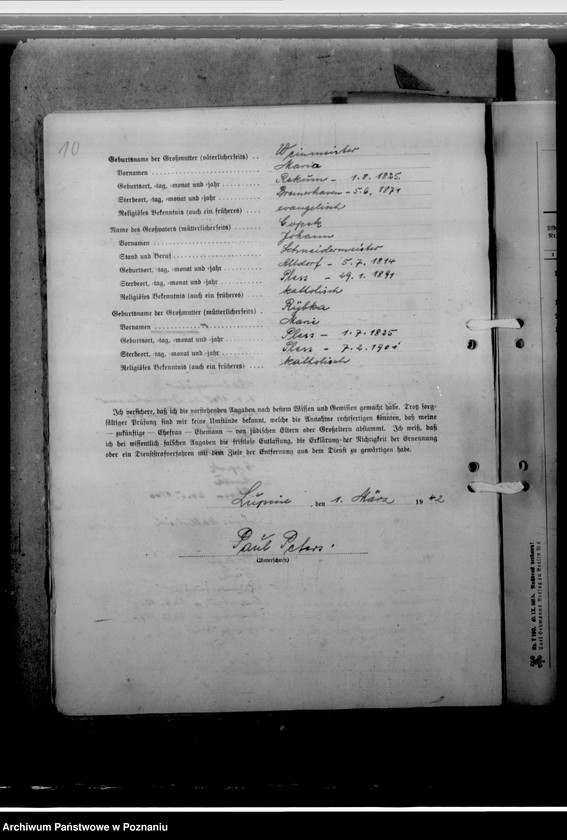 10
Geburtsname der Großmutter (väterlicherseits) . . Weinmeister
Vornamen . . . . . . . . . . . . . . . . Maria
Geburtsort, -tag, -monat und -jahr . . . . . . . . . . Rekum - 1.8.1825
Sterbeort, -tag, -monat und -jahr . . . . . . . . . . Bremerhaven - 5.6.1871
Religiöses Bekenntnis (auch ein früheres) . . . . evangelisch
Name des Großvaters (mütterlicherseits) . . . . . . Copek
Vornamen . . . . . . . . . . . . . . . . Johann
Stand und Beruf . . . . . . . . . . . . . . Schneidermeister
Geburtsort, -tag, -monat und -jahr . . . . . . . . . . Altdorf - 5.7.1814
Sterbeort, -tag, -monat und -jahr . . . . . . . . . . Pless - 29.1.1891
Religiöses Bekenntnis (auch ein früheres) . . . . katholisch
Geburtsname der Großmutter (mütterlicherseits) . Rybka
Vornamen . . . . . . . . . . . . . . . . Marie
Geburtsort, -tag, -monat und -jahr . . . . . . . . . . Pless - 1.7.1825
Sterbeort, -tag, -monat und -jahr . . . . . . . . . . Pless - 7.2.1901
Religiöses Bekenntnis (auch ein früheres) . . . . katholisch
Ich versichere, daß ich die vorstehenden Angaben nach bestem Wissen und Gewissen gemacht habe. Trotz sorg-
fältiger Prüfung sind mir keine Umstände bekannt, welche die Annahme rechtfertigen könnten, daß meine
— zukünftige — Ehefrau — Ehemann — von jüdischen Eltern oder Großeltern abstammt. Ich weiß, daß
ich bei wissentlich falschen Angaben die fristlose Entlassung, die Erklärung der Nichtigkeit der Ernennung
oder ein Dienststrafverfahren mit dem Ziele der Entfernung aus dem Dienst zu gewärtigen habe.
, den 1. März 1942
Paul Peters.
(Unterschrift)
Archiwum Państwowe w Poznaniu